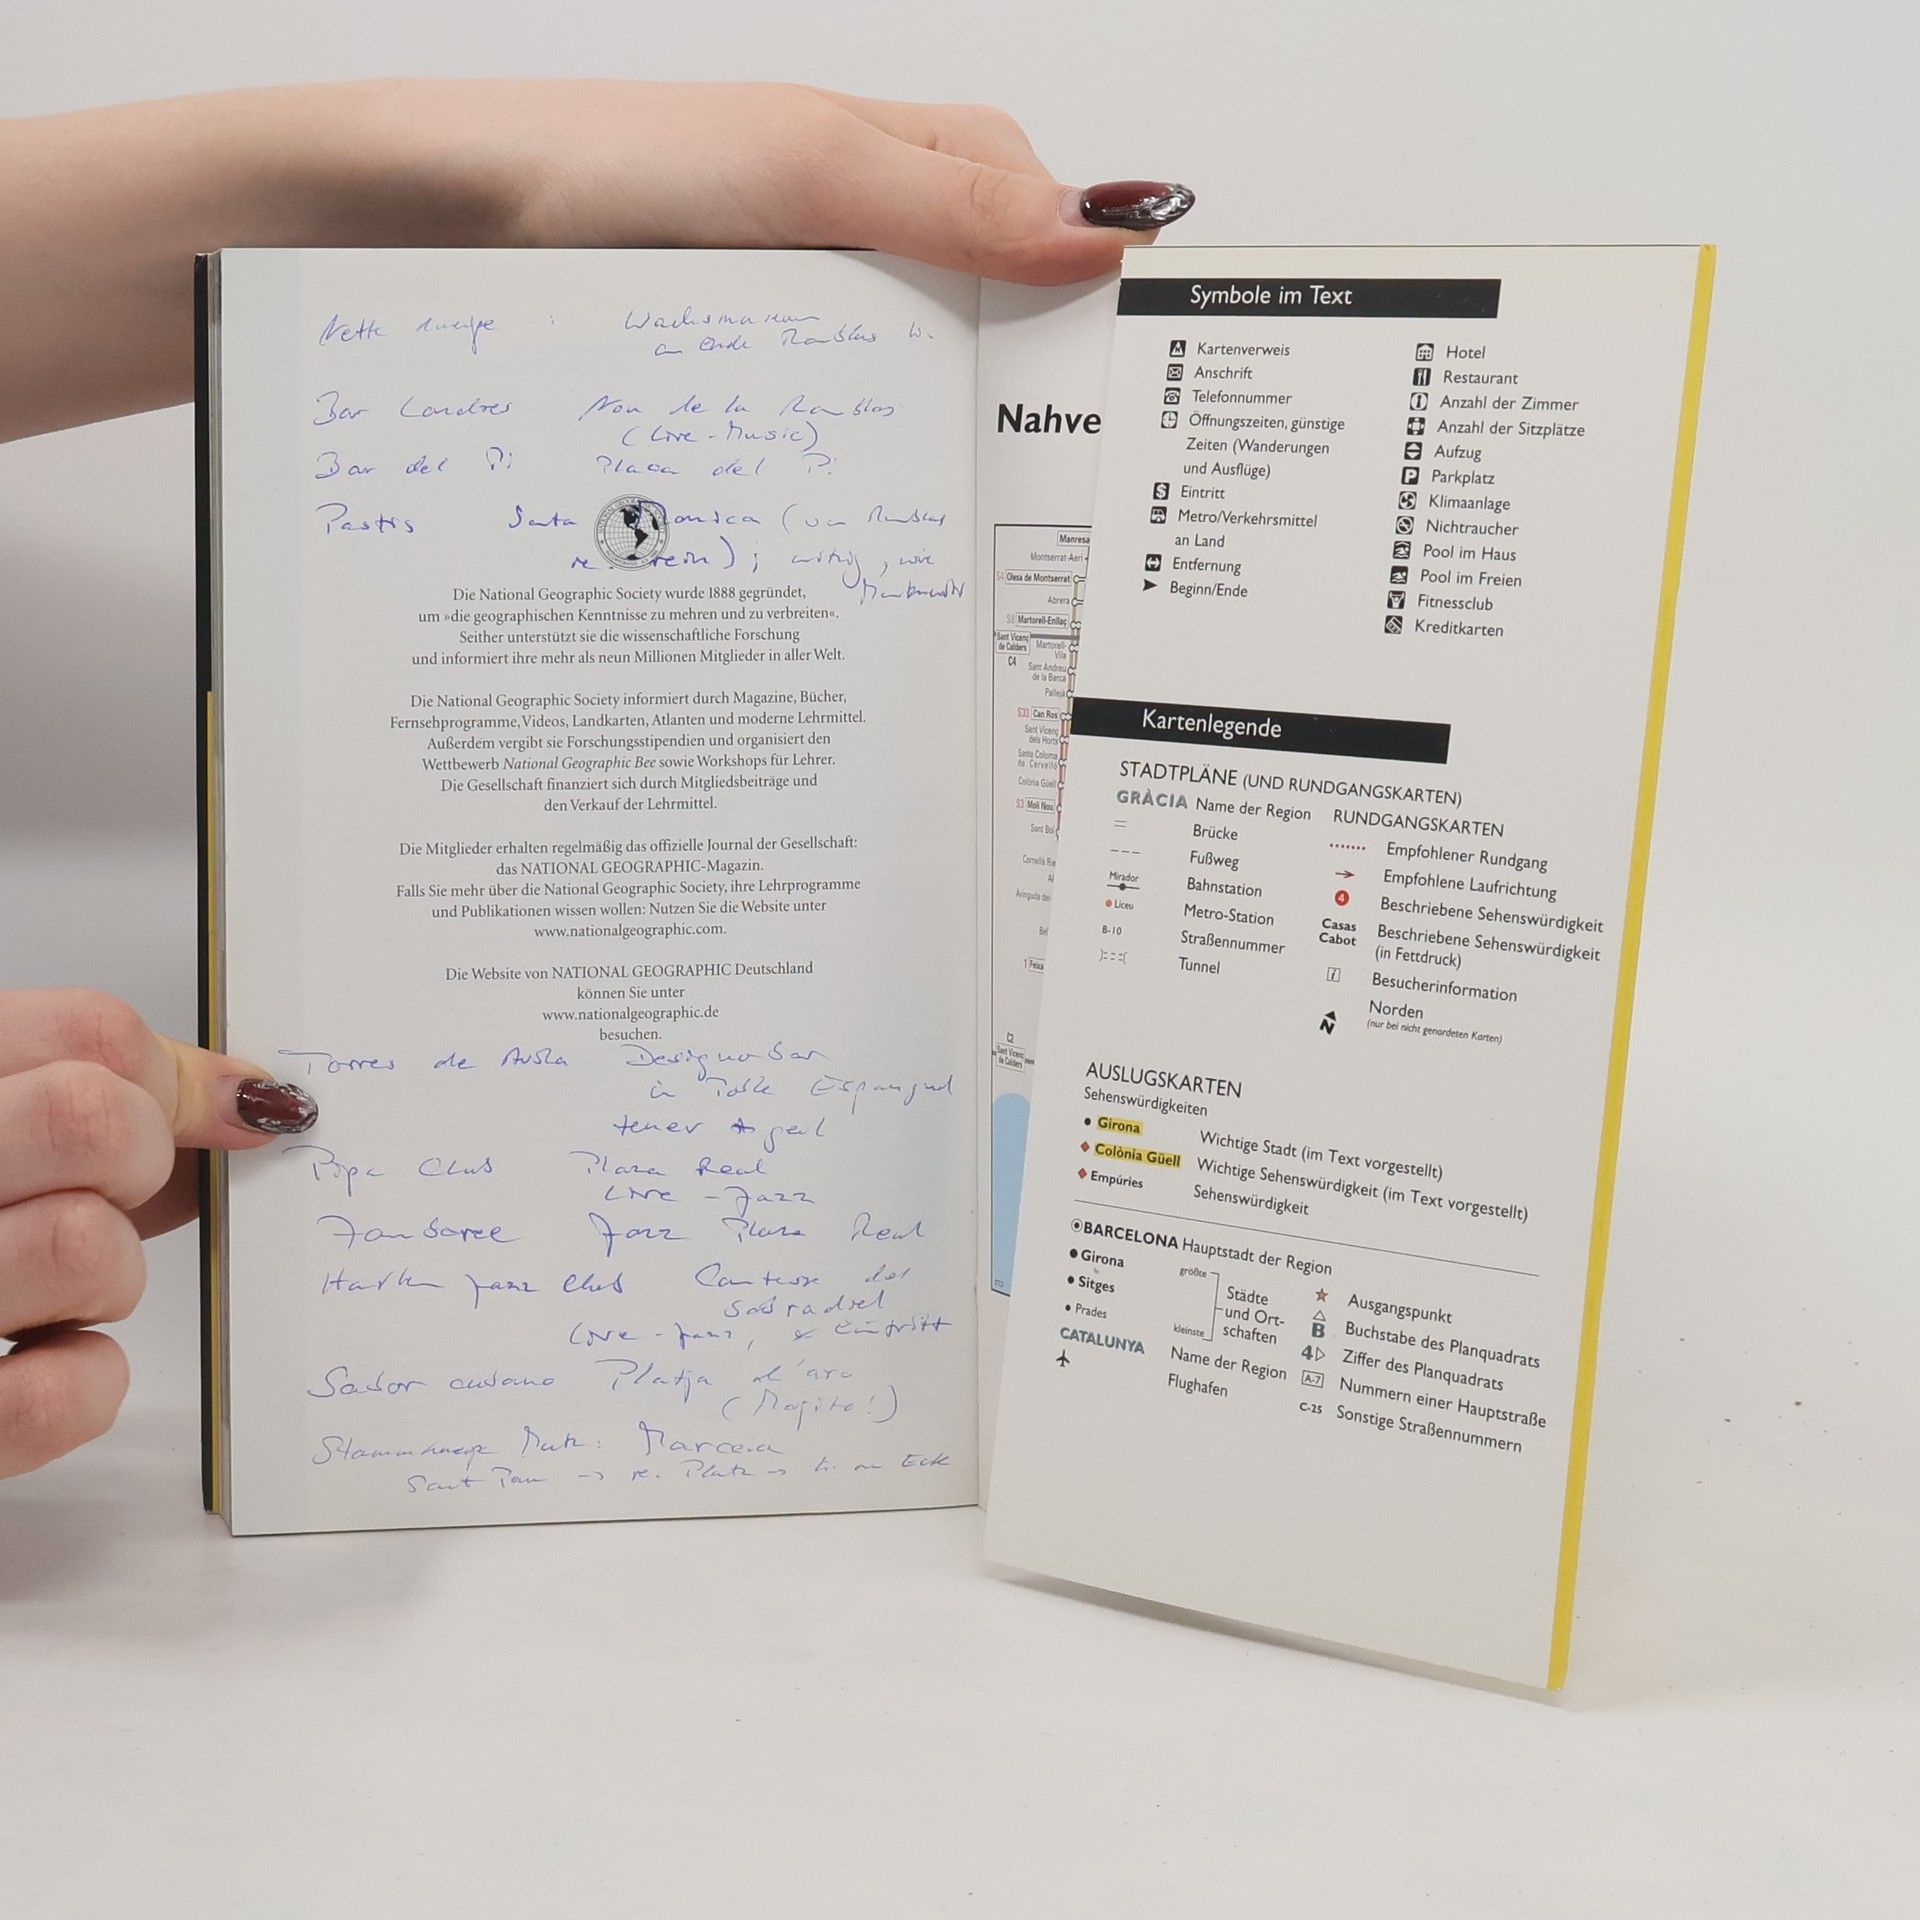 Nette Kneipe :
am Ende Ramblas
Bar Londres Nou de la Rambla
(Live-Music)
Bar del Pi Placa del Pi
Pastis Santa Monica (von Ramblas
re. rein); witzig, wie
Die National Geographic Society wurde 1888 gegründet,
um »die geographischen Kenntnisse zu mehren und zu verbreiten«.
Seither unterstützt sie die wissenschaftliche Forschung
und informiert ihre mehr als neun Millionen Mitglieder in aller Welt.
Die National Geographic Society informiert durch Magazine, Bücher,
Fernsehprogramme, Videos, Landkarten, Atlanten und moderne Lehrmittel.
Außerdem vergibt sie Forschungsstipendien und organisiert den
Wettbewerb National Geographic Bee sowie Workshops für Lehrer.
Die Gesellschaft finanziert sich durch Mitgliedsbeiträge und
den Verkauf der Lehrmittel.
Die Mitglieder erhalten regelmäßig das offizielle Journal der Gesellschaft:
das NATIONAL GEOGRAPHIC-Magazin.
Falls Sie mehr über die National Geographic Society, ihre Lehrprogramme
und Publikationen wissen wollen: Nutzen Sie die Website unter
www.nationalgeographic.com.
Die Website von NATIONAL GEOGRAPHIC Deutschland
können Sie unter
www.nationalgeographic.de
besuchen.
Torres de Avila Designerbar
in Poble Espanyol
teuer geil
Pipa Club Plaza Real
Live-Jazz
Jamboree Jazz Plaza Real
Jazz Club
Live-Jazz, Eintritt
Sabor cubano Platja d'aro
(Mojito!)
Stammkneipe
re. Platz -> li. an Eck
Nahve
Manresa
Montserrat-Aeri
S4 Olesa de Montserrat
Abrera
S8 Martorell-Enllaç
Sant Vicenç
de Calders
Martorell-
Vila
C4
Sant Andreu
de la Barca
Pallejà
S33 Can Ros
Sant Vicenç
dels Horts
Santa Coloma
de Cervelló
Colònia Güell
S3 Molí Nou
Sant Boi
C2
Sant Vicenç
de Calders
Symbole im Text
Kartenverweis
Anschrift
Telefonnummer
Öffnungszeiten, günstige
Zeiten (Wanderungen
und Ausflüge)
Eintritt
Metro/Verkehrsmittel
an Land
Entfernung
Beginn/Ende
Hotel
Restaurant
Anzahl der Zimmer
Anzahl der Sitzplätze
Aufzug
Parkplatz
Klimaanlage
Nichtraucher
Pool im Haus
Pool im Freien
Fitnessclub
Kreditkarten
Kartenlegende
STADTPLÄNE (UND RUNDGANGSKARTEN)
GRÀCIA Name der Region
Brücke
Fußweg
Mirador Bahnstation
Liceu Metro-Station
B-10 Straßennummer
Tunnel
RUNDGANGSKARTEN
Empfohlener Rundgang
Empfohlene Laufrichtung
4 Beschriebene Sehenswürdigkeit
Casas Cabot Beschriebene Sehenswürdigkeit
(in Fettdruck)
i Besucherinformation
N Norden
(nur bei nicht genordeten Karten)
AUSLUGSKARTEN
Sehenswürdigkeiten
Girona Wichtige Stadt (im Text vorgestellt)
Colònia Güell Wichtige Sehenswürdigkeit (im Text vorgestellt)
Empúries Sehenswürdigkeit
BARCELONA Hauptstadt der Region
Girona
Sitges
Prades
größte
kleinste
Städte
und Ort-
schaften
CATALUNYA Name der Region
Flughafen
Ausgangspunkt
B Buchstabe des Planquadrats
4 Ziffer des Planquadrats
A-7 Nummern einer Hauptstraße
C-25 Sonstige Straßennummern